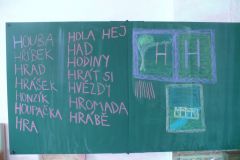 HOUBA
HŘÍBEK
HRAD
HRÁŠEK
HONZÍK
HOUPAČKA
HRA
HOLA HEJ
HAD
HODINY
HRÁT SI
HVĚZDY
HROMADA
HRÁBĚ
H H